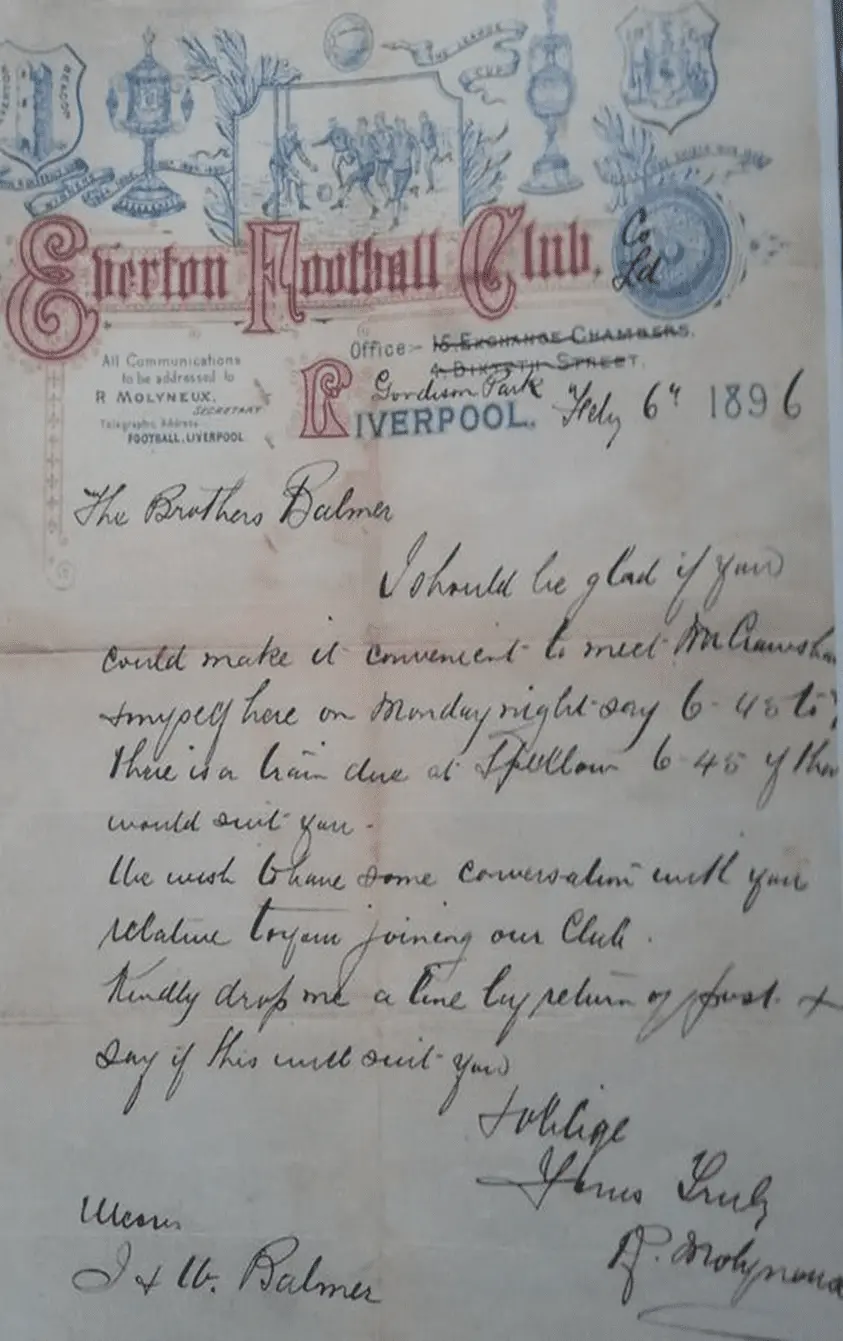 EVERTON BEACON
THE LEAGUE
CUP
WINNERS
Everton Football Club. Co
Ld
Office:- 15. EXCHANGE CHAMBERS.
4. BIXTETH STREET.
All Communications
to be addressed to
R MOLYNEUX.
SECRETARY
Telegraphic Address
FOOTBALL, LIVERPOOL
Goodison Park
LIVERPOOL. Feby 6th 1896
The Brothers Balmer
I should be glad if you
could make it convenient to meet Mr
& myself here on Monday night say 6-45 to
There is a train due at Spellow 6-45 if
would suit you.
We wish to have some conversation with you
relative to your joining our Club.
Kindly drop me a line by return of post &
say if this will suit you
& oblige
Yours Truly
R. Molyneux
Messrs
J & W. Balmer